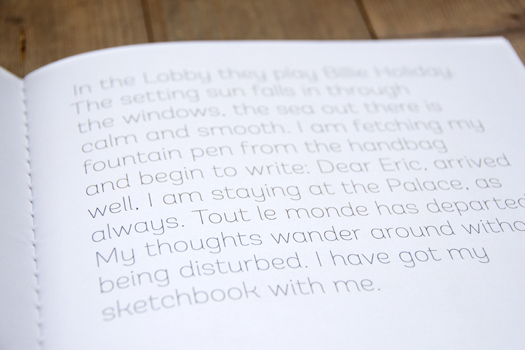 In the Lobby they play Billie Holiday
The setting sun falls in through
the windows, the sea out there is
calm and smooth. I am fetching my
fountain pen from the handbag
and begin to write: Dear Eric, arrived
well, I am staying at the Palace, as
always. Tout le monde has departed
My thoughts wander around witho
being disturbed. I have got my
sketchbook with me.